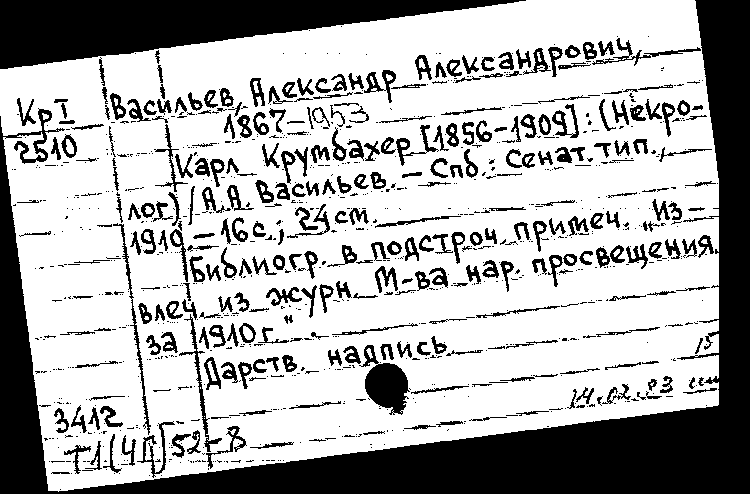 Кр I Васильев, Александр Александрович,
2510 1867-1953
Карл Крумбахер [1856-1909]: (Некро-
лог) / А.А. Васильев. – Спб.: Сенат. тип.,
1910. – 16 с.; 24 см.
Библиогр. в подстроч. примеч. „Из-
влеч. из журн. М-ва нар. просвещения
за 1910 г.“.
Дарств. надпись
15
14.02.83
3412
Т1(4Г)52-8